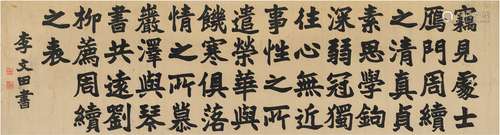 竊見處士
雁門周續
之清真貞
素思學鉤
深弱冠獨
往心無近
事性之所
遣榮華與
饑寒俱落
情之所慕
巖澤與琴
書共遠劉
柳薦周續
之表
李文田書